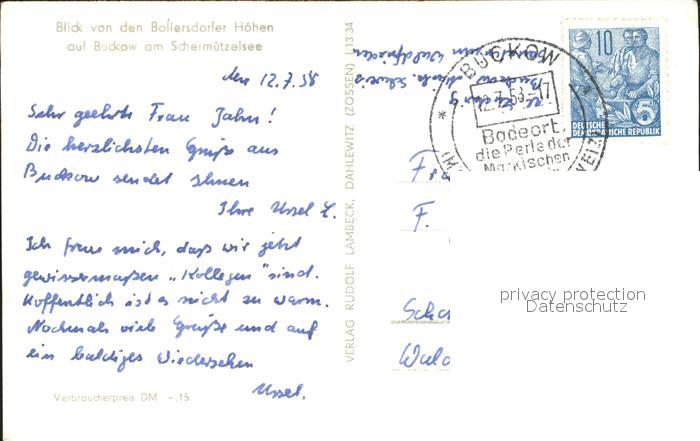 Blick von den Bollersdorfer Höhen
auf Buckow am Schermützelsee
den 12.7.58
Sehr geehrte Frau Jahn!
Die herzlichsten Grüße aus
Buckow sendet Ihnen
Ihre Ursel L.
Ich freue mich, daß wir jetzt
gewissermaßen „Kollegen" sind.
Hoffentlich ist es nicht zu warm.
Nochmals viele Grüße und auf
ein baldiges Wiedersehen
Ursel.
Verbraucherpreis DM -.15
VERLAG RUDOLF LAMBECK, DAHLEWITZ (ZOSSEN) L 13-34
Buckow Märk. Schweiz
BUCKOW
12.7.58-17
Badeort,
die Perle der
Märkischen
10
5
DEUTSCHE
DEMOKRATISCHE REPUBLIK
F.
privacy protection
Datenschutz